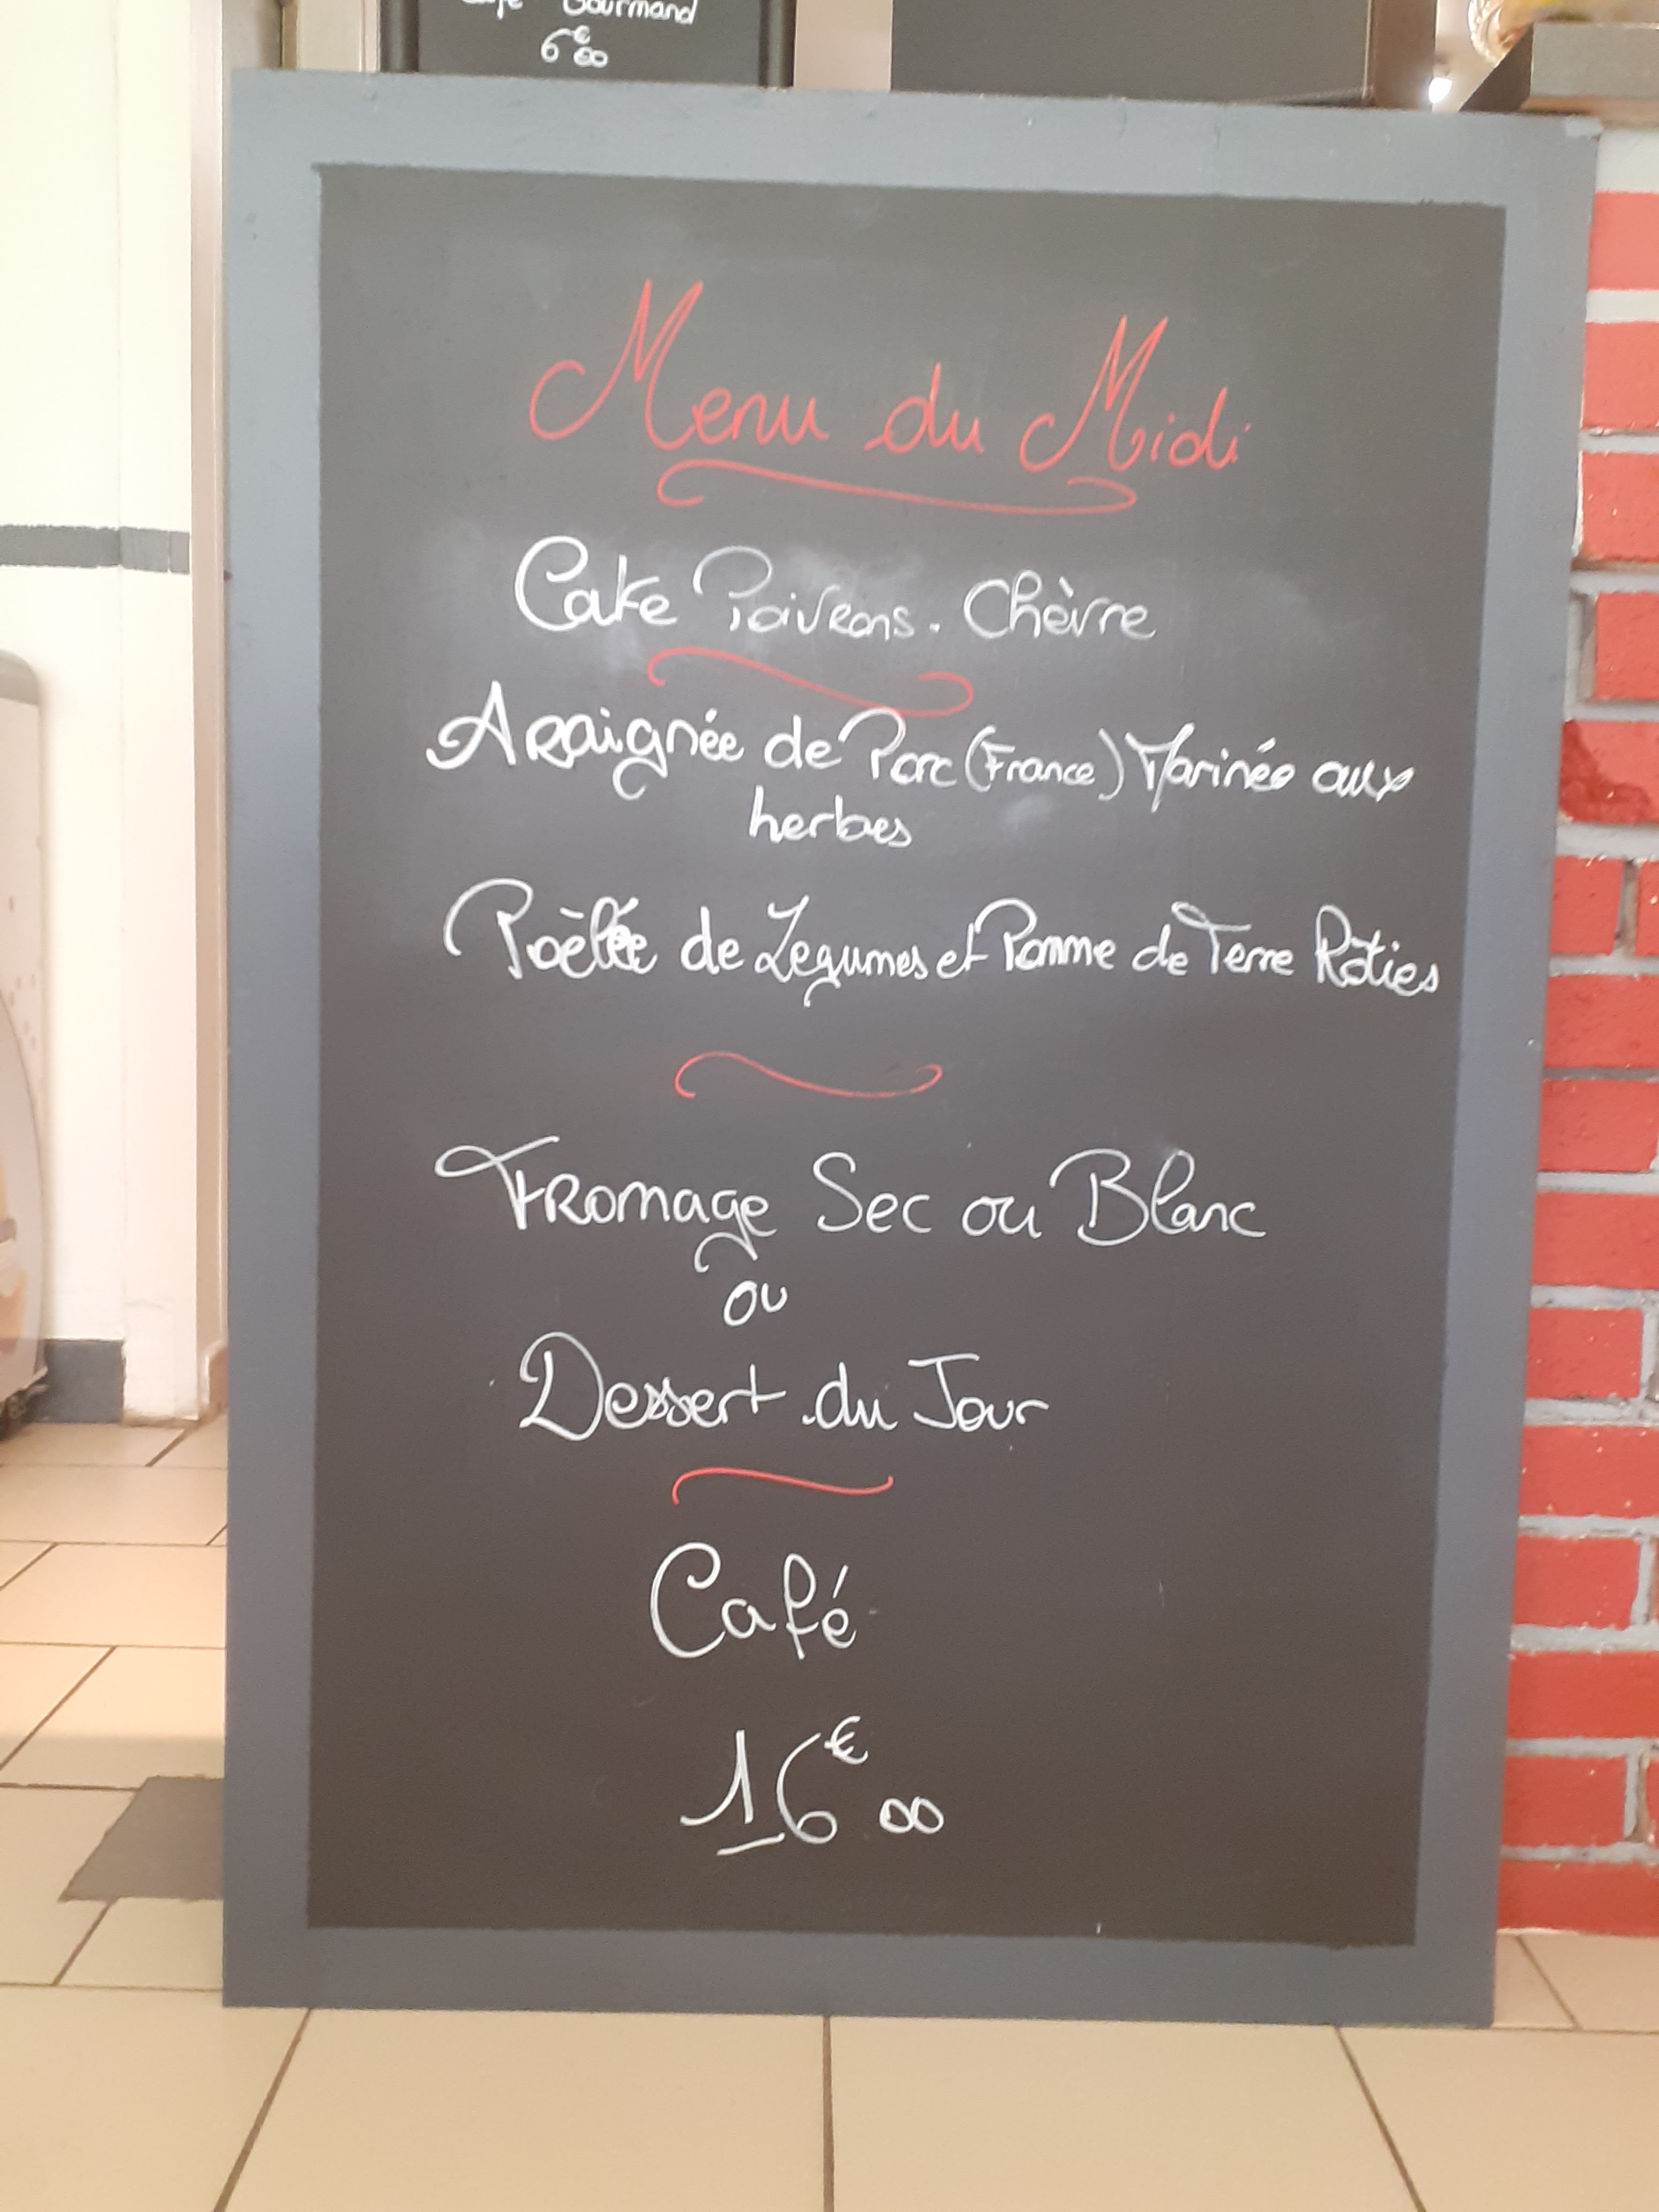 Gourmand
6€00
Menu du Midi
Cake Poivrons. Chèvre
Araignée de Porc (France) Marinée aux
herbes
Poêlée de Legumes et Pomme de Terre Rôties
Fromage Sec ou Blanc
ou
Dessert du Jour
Café
16€00